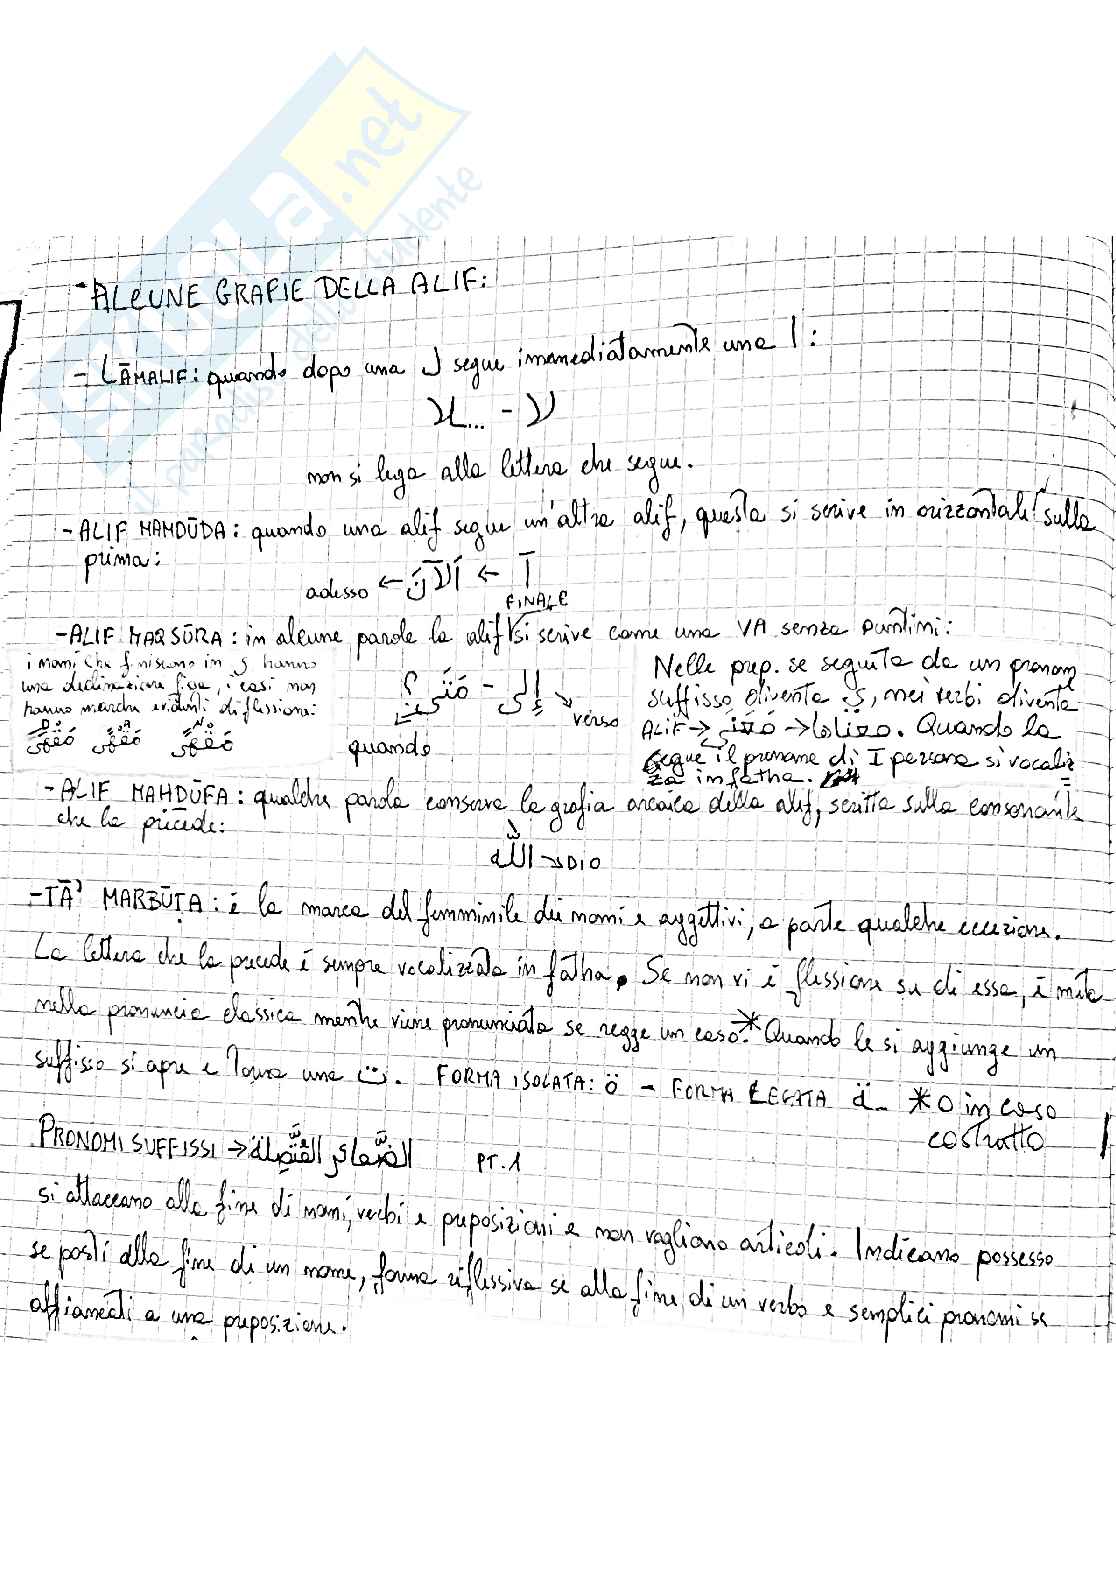 SKUOLA.net
il paradiso dello studente
- ALCUNE GRAFIE DELLA ALIF:
- LĀMALIF: quando dopo una ل segue immediatamente una ا :
لا... - لا
non si lega alla lettera che segue.
- ALIF MAMDŪDA: quando una alif segue un'altra alif, questa si scrive in orizzontale sulla
prima:
adesso ← اَلآنَ ← آ
FINALE
- ALIF MAQSŪRA: in alcune parole la alif si scrive come una YA senza puntini:
i nomi che finiscono in ى hanno
una declinazione fissa, i casi non
hanno marche evidenti di flessione:
D A N
مَقْهًى مَقْهًى مَقْهًى
إِلى - مَتَى؟
verso
quando
Nelle prep. se seguita da un pronom
suffisso diventa ي, nei verbi diventa
ALIF → →. Quando la
segue il pronome di I persona si vocaliz
za in fatha.
- ALIF MAHDŪFA: qualche parola conserva la grafia arcaica della alif, scritta sulla consonante
che la precede:
الله → DIO
- TĀ' MARBŪṬA: è la marca del femminile dei nomi e aggettivi, a parte qualche eccezione.
La lettera che la precede è sempre vocalizzata in fatha. Se non vi è flessione su di essa, è muta
nella pronuncia classica mentre viene pronunciata se regge un caso.* Quando le si aggiunge un
suffisso si apre e torna una ت. FORMA ISOLATA: ة - FORMA LEGATA ـة * O in caso
costrutto
PRONOMI SUFFISSI → الضَّمائر المُتَّصِلة PT. 1
si attaccano alla fine di nomi, verbi e preposizioni e non vogliono articoli. Indicano possesso
se posti alla fine di un nome, forma riflessiva se alla fine di un verbo e semplici pronomi se
affiancati a una preposizione.